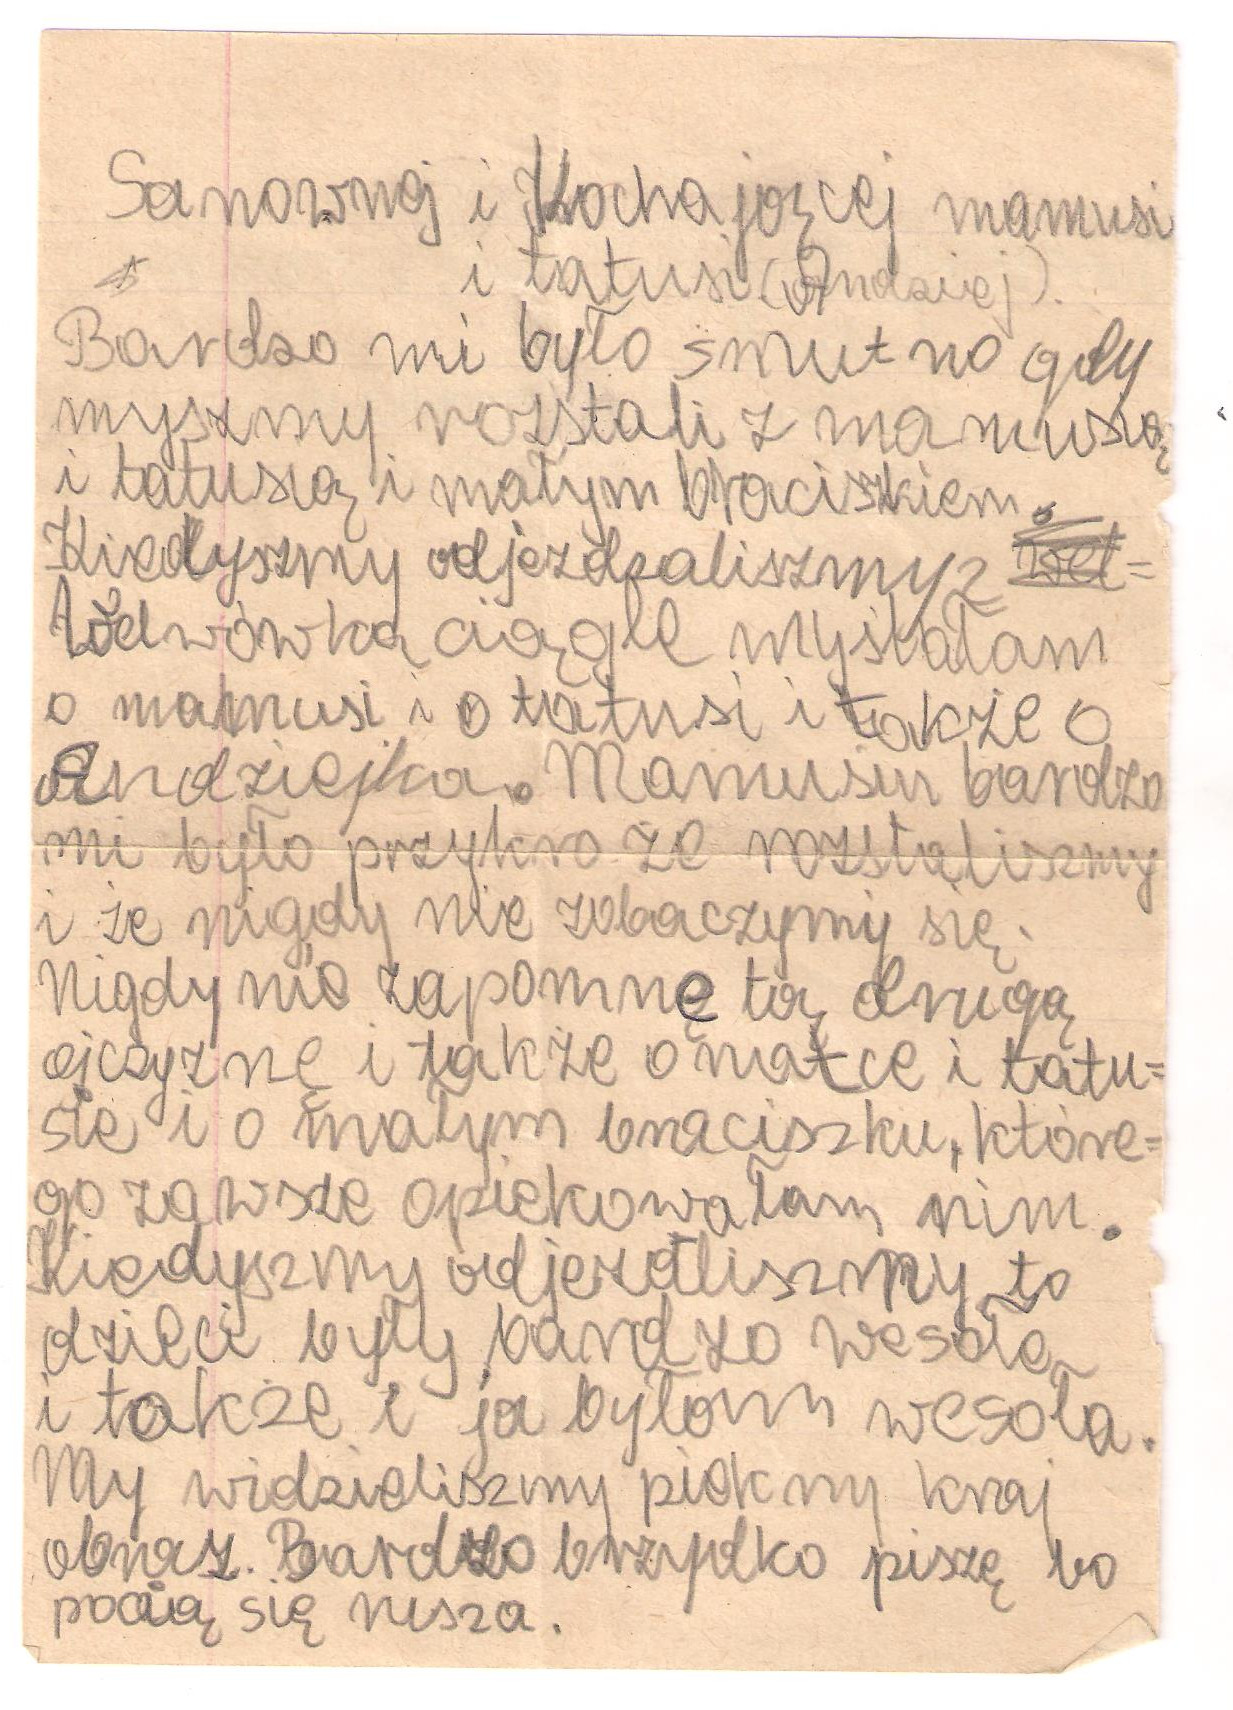 Sanownej i Kochajoącej mamusi
i tatusi (Andziej).
Bardzo mi było smutno gdy
myszmy rozstali z mamusią
i tatusią i małym braciszkiem.
Kiedyszmy odjezdzaliszmy z
ciągle myśłałam
o mamusi i o tatusi i także o
Andziejka. Mamusiu bardzo
mi było przykro że rozstaliszmy
i że nigdy nie zobaczymy się.
Nigdy nie zapomnę tą drugą
ojczyznę i także o matce i tatu=
sie i o małym braciszku, które=
go zawsze opiekowałam nim.
Kiedyszmy odjezdliszmy to
dzieci były bardzo wesołe
i także i ja byłam wesoła.
My widzieliszmy piekny kraj
obraz. Bardzo brzydko piszę bo
pocią się rusza.